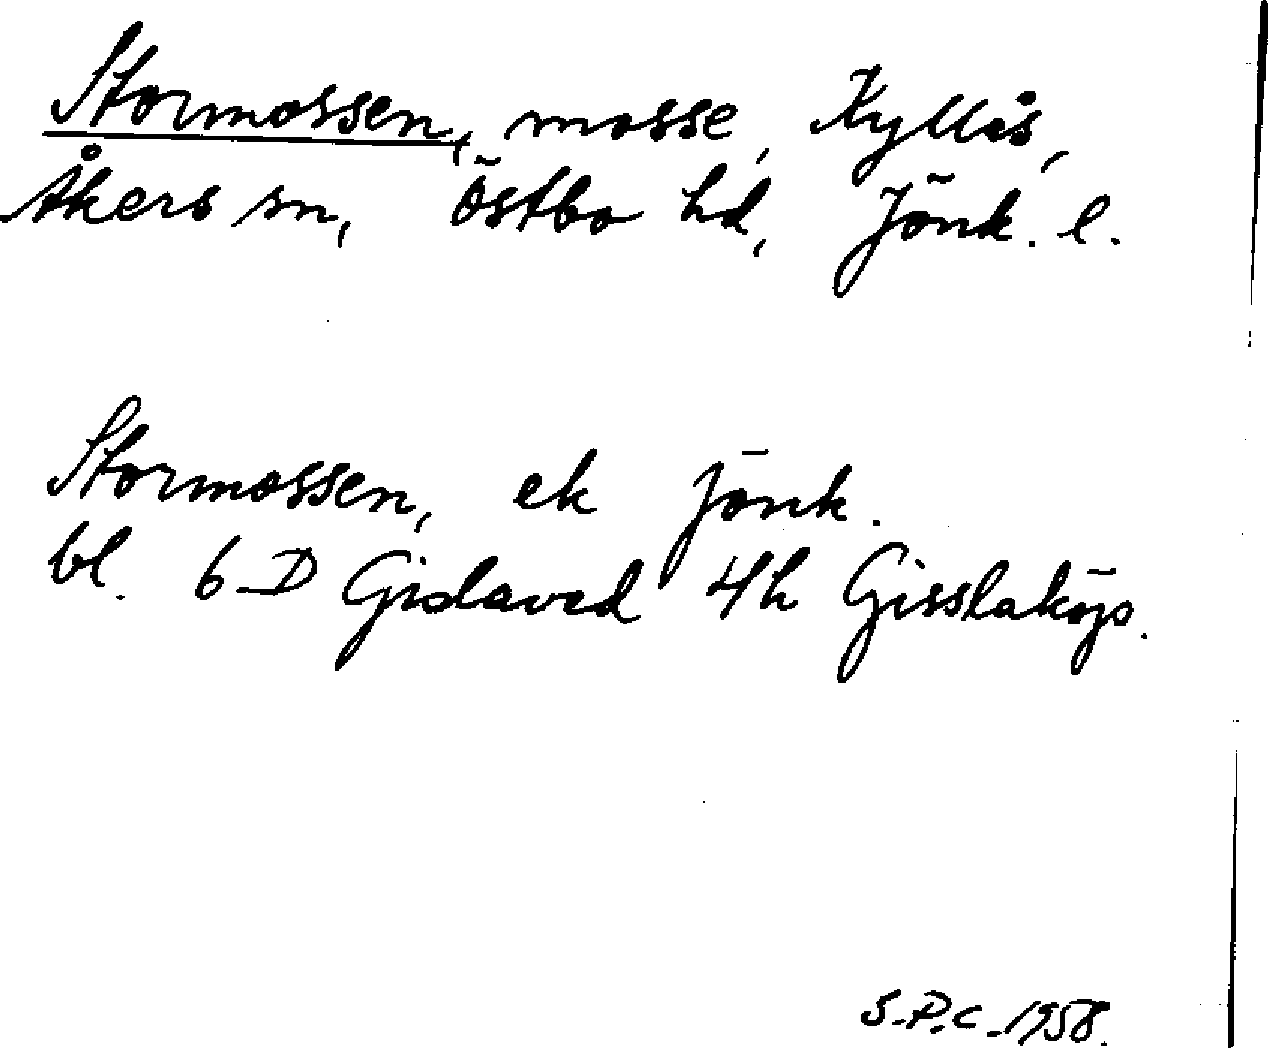 Stormossen, mosse, Kyllås,
Åkers sn, Östbo hd, Jönk. l.
Stormossen, ek Jönk.
bl. 6 D Gislaved 4h Gisslaköp.
S.P.C. 1958.